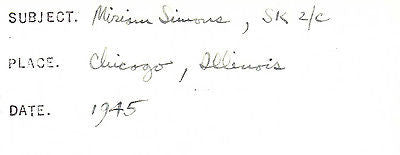 SUBJECT. Miriam Simons, SK 2/c
PLACE. Chicago, Illinois
DATE. 1945